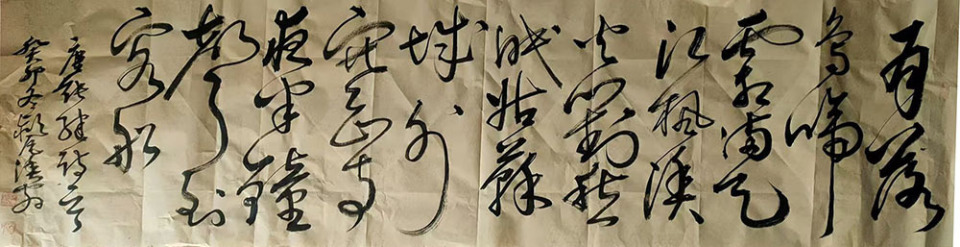 月落
烏啼
霜滿天
江楓漁
火對愁
眠姑蘇
城外
寒山寺
夜半鐘
聲到
客船
唐張繼詩
癸卯冬